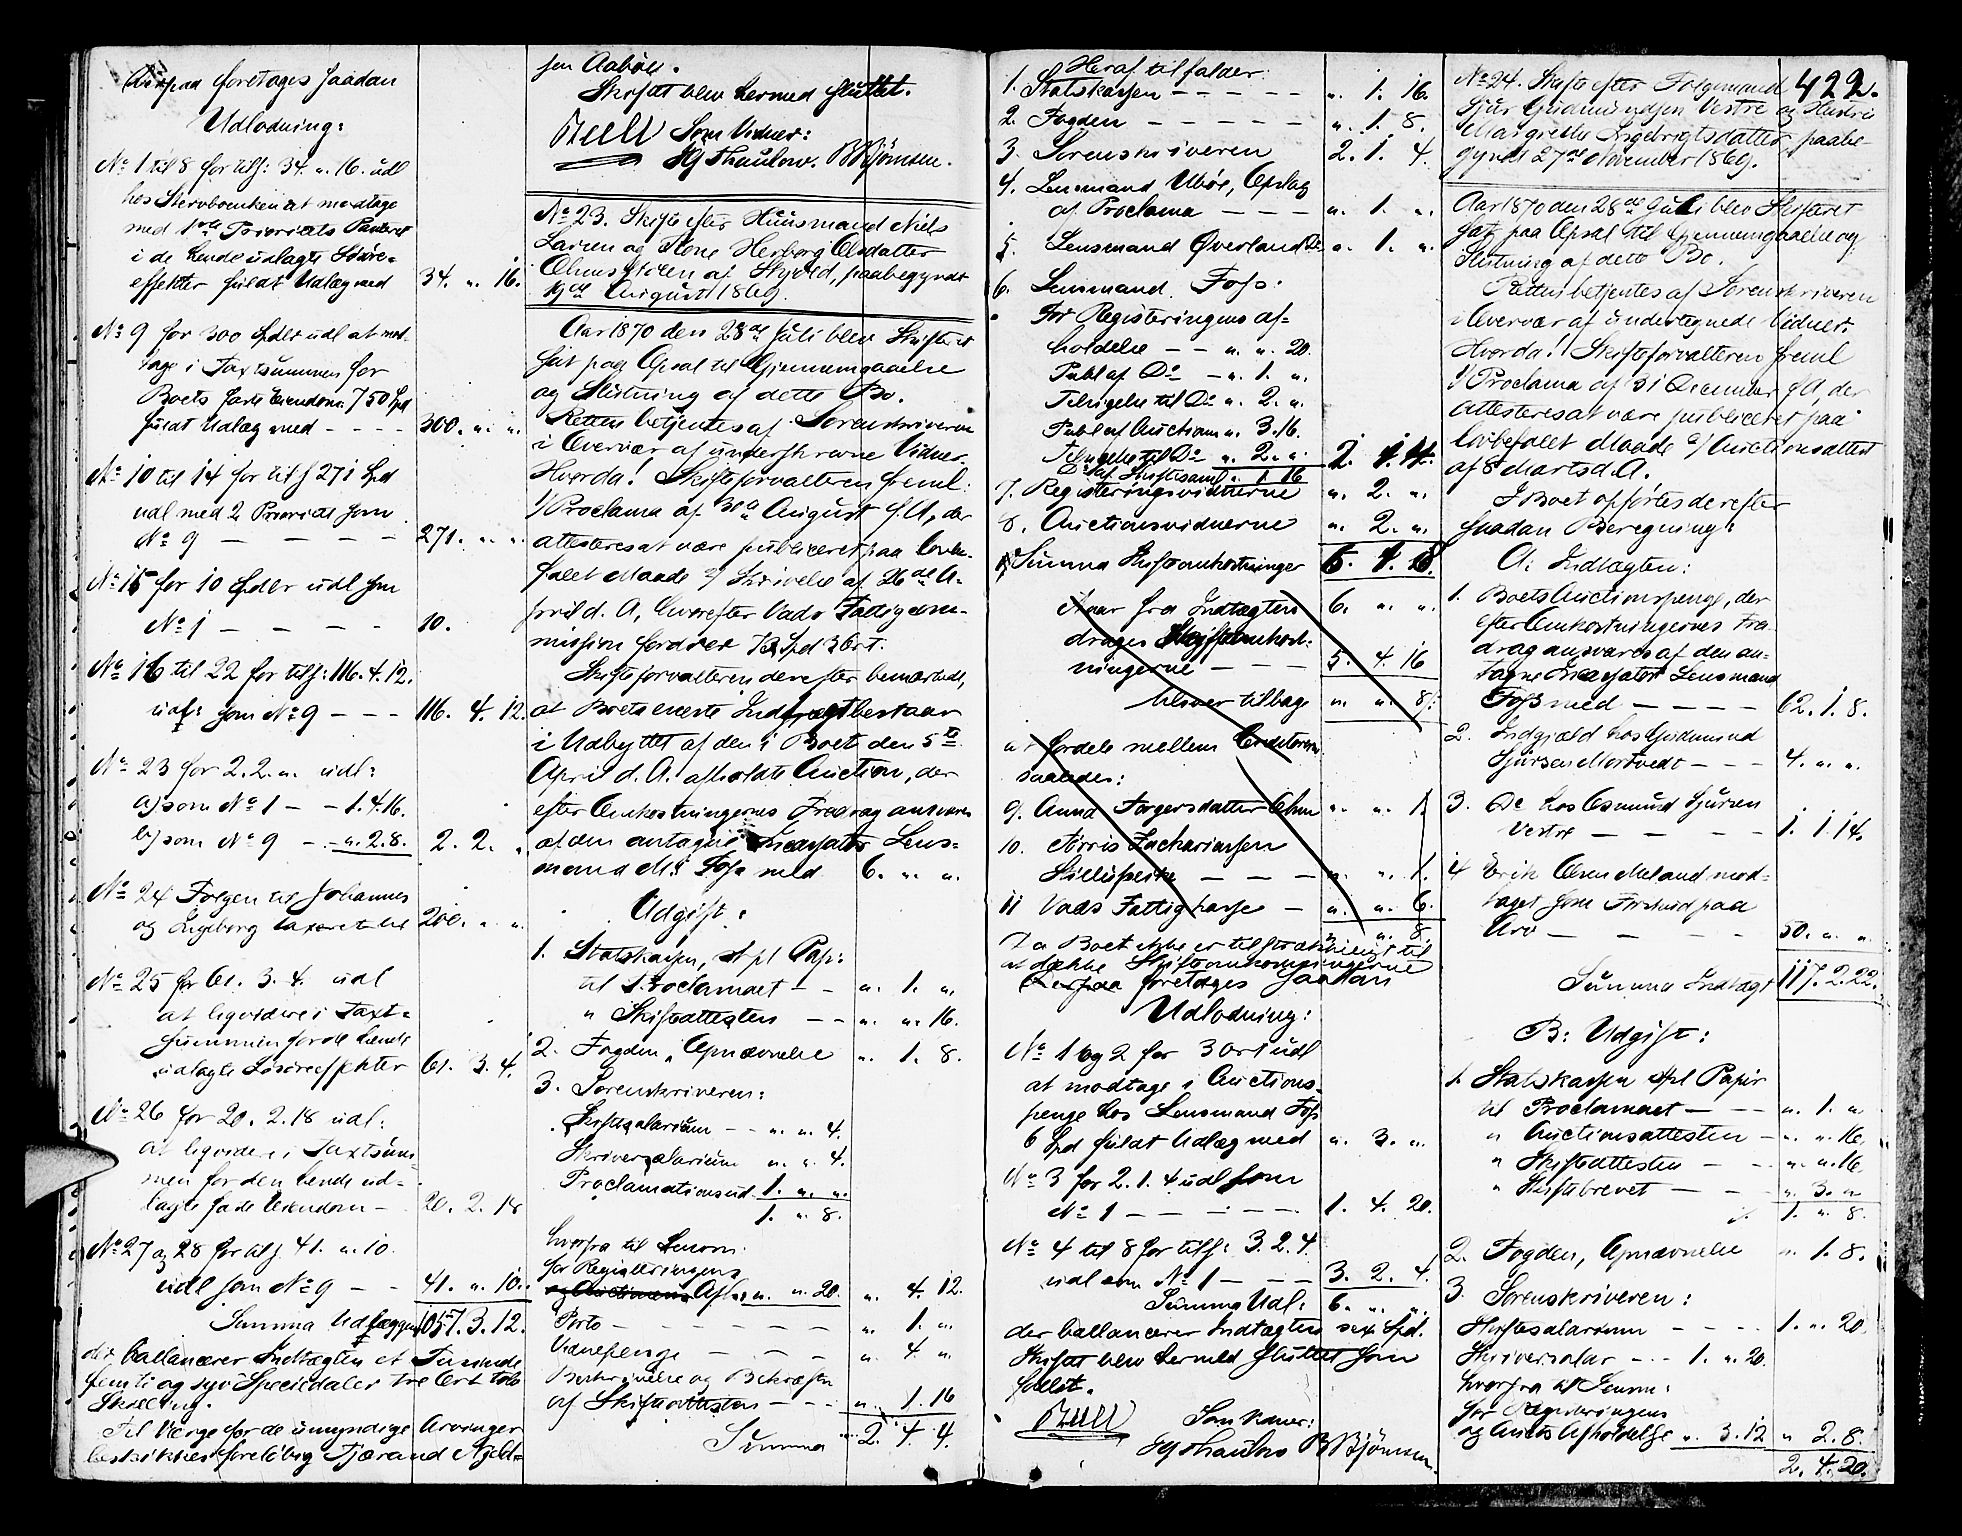 Derpaa foretages saadan
Udlodning:
No 1 til 8 for tils: 34. „. 16. udl
hos Stervboenken at modtage
med 1ste Prioritets Panteret
i de hende udlagte Løsøre-
effekter fuldt Udlæg med 34. „. 16.
No 9 for 300 Spdlr udl at mod-
tage i Taxtsummen for
Boets faste Eiendom 750 Spd
fuldt Udlæg med - - - - 300. „. „.
No 10 til 14 for tils 271 Spd
udl med 2 Prioritet som
No 9 — — — — 271. „. „.
No 15 for 10 Spdlr udl som
No 1 — — — — 10.
No 16 til 22 for tils: 116. 4. 12.
udl: som No 9 — — — 116. 4. 12.
No 23 for 2. 2. „. udl:
a) som No 1 — — 1. 4. 16.
b) som No 9 — — „. 2. 8. 2. 2. „.
No 24 Følgen til Johannes
og Ingeborg taxeret til 200. „. „.
No 25 for 61. 3. 4. udl
at liqvidere i Taxt-
summen for de hende
udlagte Løsøreeffekter 61. 3. 4.
No 26 for 20. 2. 18 udl:
at liqvidere i Taxtsum-
men for den hende ud-
lagte faste Eiendom — 20. 2. 18
No 27 og 28 for tils 41. „. 10.
udl som No 9 — — 41. „. 10.
Summa Udlæggene 1057. 3. 12.
der ballancerer Indtægten et Tusinde
femti og syv Speciedaler tre Ort tolv
Skilling.
Til Værge for de umyndige Arvinger
beskikkes foreløbig Tjærand
sen Aabøe.
Skiftet blev hermed sluttet.
Bull Som Vidner:
Hj Thaulow. B Bjørnsen.
No 23. Skifte efter Huusmand Niels
Larsen og Kone Herborg Olsdatter
Olmshølen af Skjold, paabegyndt
19de August 1869.
Aar 1870 den 28de Juli blev Skifteret
sat paa Opsal til Gjennemgaaelse
og Slutning af dette Bo.
Retten betjentes af Sorenskriveren
i Overvær af underskrevne Vidner.
Hvorda! Skifteforvalteren freml:
1/ Proclama af 30de August f. A, der
attesteres at være publiceret paa lovbe-
falet Maade 2/ Skrivelse af 26de A-
pril d. A, hvorefter Vads Fattigcom-
mission fordrer 13 Spd 3 Ort.
Skifteforvalteren derefter bemærkede,
at Boets eneste Indtægt bestaar
i Udbyttet af den i Boet den 5te
April d. A. afholdte Auction, der
efter Omkostningernes Fradrag ansvares
af den antagne Incassator Lens-
mand M: Foss med 6. „. „.
Udgift:
1. Statskassen, stpl Pap:
til Proclamaet — — „. 1. „.
„ Skifteattesten — — „. „. 16.
2. Fogden, Opnævnelse „. 1. 8.
3. Sorenskriveren:
Skiftesalarium — — „. „. 4.
Skriversalarium „. „. 4.
Proclamationsud. 1. „. „.
1. „. 8.
hvorfra til Lensm:
for Registreringens
og Auctionens Afh: „. „. 20. „. 4. 12.
Porto — — — — — „. 1. „.
Vidnepenge — — — „. 4. „.
Beskrivelse og Bekræften
af Skifteattesten — — — „. 1. 16
Summa 2. 4. 4.
Heraf tilfalder:
1. Statskassen — — — — — „. 1. 16.
2. Fogden — — — — — „. 1. 8.
3. Sorenskriveren 2. 1. 4.
4. Lensmand Ubøe, Opslag
af Proclama — — — „. 1. „.
5. Lensmand Øverland Do „. 1. „.
6. Lensmand Foss:
for Registeringens af-
holdelse — — „. „. 20.
Publ af Do — „. 1. „.
Tilsigelse til Do „. 2. „.
Publ af Auctionen „. 3. 16.
Tilsigelse til Do „. 2. „.
Do til Skiftesaml „. 1. 16
7. Registeringsvidnerne „. 2. „.
8. Auctionsvidnerne „. 2. „.
Summa Skifteomkostninger 6.
Naar fra Indtægten 6. „. „.
drages Skifteomkost-
ningerne — — — 5. 4. 16
bliver tilbage „. „. 8.
at fordele mellem Creditorerne
saaledes:
9. Anna Torgersdatter Olm „. „. 1.
10. Zachariassen
— — — „. „. 1.
11 Vads Fattigkasse — „. „. 6.
„. „. 8.
Da Boet ikke er tilstrækkeligt til
at dække Skifteomkostningerne
Derpaa foretages saadan
Udlodning:
No 1 og 2 for 3 Ort udl
at modtage i Auctions-
penge hos Lensmand Foss
6 Spd fuldt Udlæg med „. 3. „.
No 3 for 2. 1. 4 udl som
No 1 — — — — — 1. 4. 20.
No 4 til 8 for tils: 3. 2. 4.
udl som No 1 — — — 3. 2. 4.
Summa Udl: 6. „. „.
der ballancerer Indtægten sex Spd.
Skiftet blev hermed sluttet som
fallit.
Bull Som Vidner:
Hj Thaulow B Bjørnsen.
422.
No 24. Skifte efter Følgemand
Sjur Gudmundsen Vestre og Hustru
Margrethe Ingebrigtsdatter, paabe-
gyndt 27de November 1869.
Aar 1870 den 28de Juli blev Skifteret
sat paa Opsal til Gjennemgaaelse og
Slutning af dette Bo.
Retten betjentes af Sorenskriveren
i Overvær af undertegnede Vidner.
Hvorda! Skifteforvalteren freml
1/ Proclama af 31 December f A, der
attesteres at være publiceret paa
lovbefalet Maade 2/ Auctionsattest
af 8 Marts d. A.
I Boet opførtes derefter
saadan Beregning:
A: Indtægten:
1. Boets Auctionspenge, der
efter Omkostningernes Fra-
drag ansvares af den an-
tagne Incassator Lensmand
Foss med — — — — 62. 1. 8.
2. Indgjæld hos Gudmund
Sjursen Mortvedt — — — 4. „. „.
3. Do hos Osmund Sjursen
Vestre — — — — 1. 1. 14.
4 Erik Olsen Meland mod-
taget som Forskud paa
Arv — — — — 50. „. „.
Summa Indtægt 117. 2. 22.
B: Udgift:
1. Statskassen stpl Papir
til Proclamaet — — — „. 1. „
„ Auctionsattesten — „. „. 16.
„ Skifteattesten — — „. „. 16.
„ Skiftebrevet — — „. 3. „
1. „. 8.
2. Fogden, Opnævnelse „. 1. 8.
3. Sorenskriveren:
Skiftesalarium — — — — 1. „. 20.
Skriversalar — — 1. „. 20.
hvorfra til Lensm:
for Registeringens
og Auct's Afholdelse „. 3. 12 „ 2. 8.
2. 4. 20.